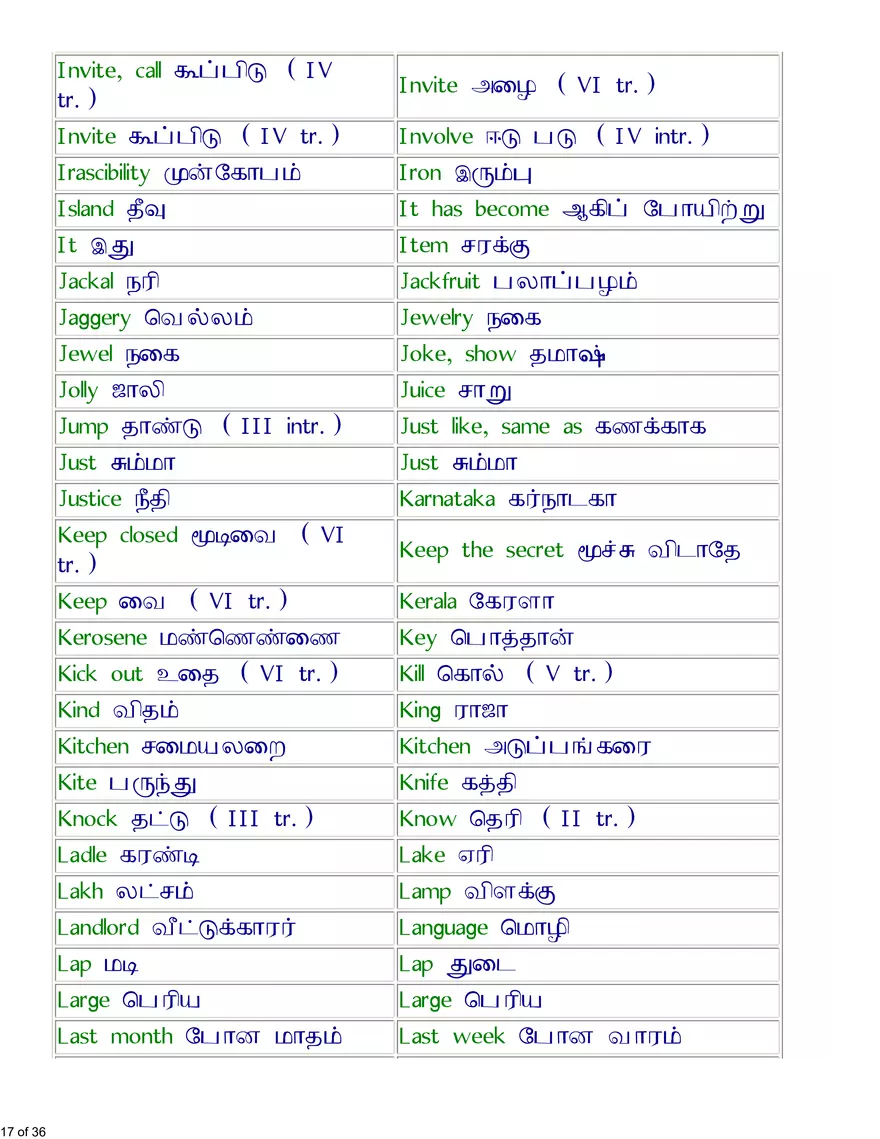 Invite, call கூப்பிடு ( IV
tr. )
Invite அழை ( VI tr. )
Invite கூப்பிடு ( IV tr. )
Involve ஈடு படு ( IV intr. )
Irascibility முன்கோபம்
Iron இரும்பு
Island தீவு
It has become ஆகிப் போயிற்று
It இது
Item சரக்கு
Jackal நரி
Jackfruit பலாப்பழம்
Jaggery வெல்லம்
Jewelry நகை
Jewel நகை
Joke, show தமாஷ்
Jolly ஜாலி
Juice சாறு
Jump தாண்டு ( III intr. )
Just like, same as கணக்காக
Just சும்மா
Just சும்மா
Justice நீதி
Karnataka கர்நாடகா
Keep closed மூடிவை ( VI
tr. )
Keep the secret மூச்சு விடாதே
Keep வை ( VI tr. )
Kerala கேரளா
Kerosene மண்ணெண்ணை
Key பொத்தான்
Kick out உதை ( VI tr. )
Kill கொல் ( V tr. )
Kind விதம்
King ராஜா
Kitchen சமையலறை
Kitchen அடுப்பங்கரை
Kite பருந்து
Knife கத்தி
Knock தட்டு ( III tr. )
Know தெரி ( II tr. )
Ladle கரண்டி
Lake ஏரி
Lakh லட்சம்
Lamp விளக்கு
Landlord வீட்டுக்காரர்
Language மொழி
Lap மடி
Lap துடை
Large பெரிய
Large பெரிய
Last month போன மாதம்
Last week போன வாரம்
17 of 36